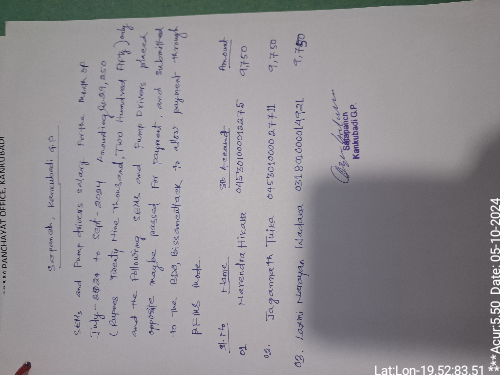 PANCHAYAT OFFICE, KANKUBADI
Sarpanch, Kankubadi G.P
SEMs and Pump drivers salary for the month of
July-2024 to Sept-2024 Amounting Rs 29,250
(Rupees Twenty Nine thousand, Two Hundred Fifty) only
and the following SEMs and Pump Drivers placed
opposite maybe passed for payment and submitted
to the BDO, Bissamcuttack to allow payment through
PFMS mode.
Sl.No Name SB Account Amount
01 Narendra Hikaka 9,750
02. Jagannath Tuika 9,750
03. Laxmi Narayan Wadaka 9,750
Sarpanch
Kankubadi G.P.
Lat:Lon-19.52:83.51
***Acur:5.50 Date: 05-10-2024